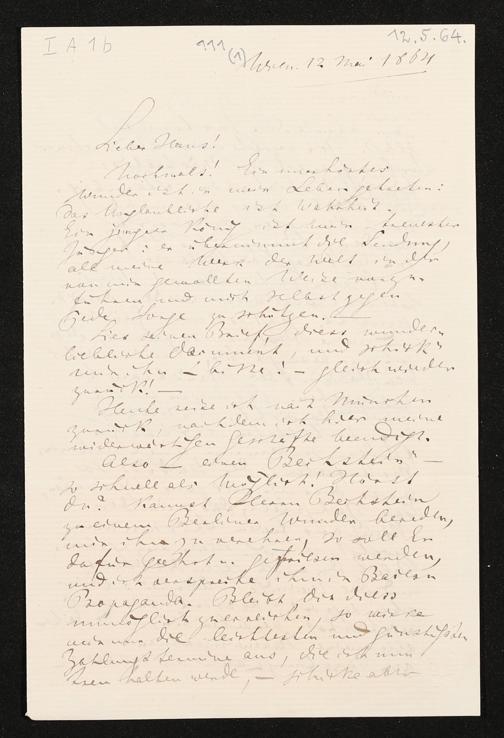 I A 1b
111 (1)
12.5.64.
Wien. 12 Mai 1864
Lieber Hans!
Nochmals! Ein unerhörtes
Wunder ist in mein Leben getreten:
das Unglaubliche ist Wahrheit.
Ein junger König ist mein treuester
Jünger: er übernimmt die Sendung,
alle meine Werke der Welt in der
von mir gewollten Weise
führen und mich selbst gegen
jede Sorge zu schützen. —
Lies seinen Brief, dies wunder-
liebliche Document, und schick'
mir ihn — bitte! — gleich wieder
zurück! —
Heute reise ich nach München
zurück, nachdem ich hier meine
widerwärtigen Geschäfte beendigt.
Also — einen Bechstein" —
so schnell als möglich! Hörst
du? Kannst Herrn Bechstein
zu einem Berliner Wunder bereden,
mir ihn zu verehren, so soll Er
dafür geehrt u. gepriesen werden,
und ich verspreche ihm in Baiern
Propaganda. Bleibt dir dies
unmöglich zu erreichen, so wirke
mir nur die leichtesten und günstigsten
Zahlungstermine aus, die ich
halten werde, — schicke aber